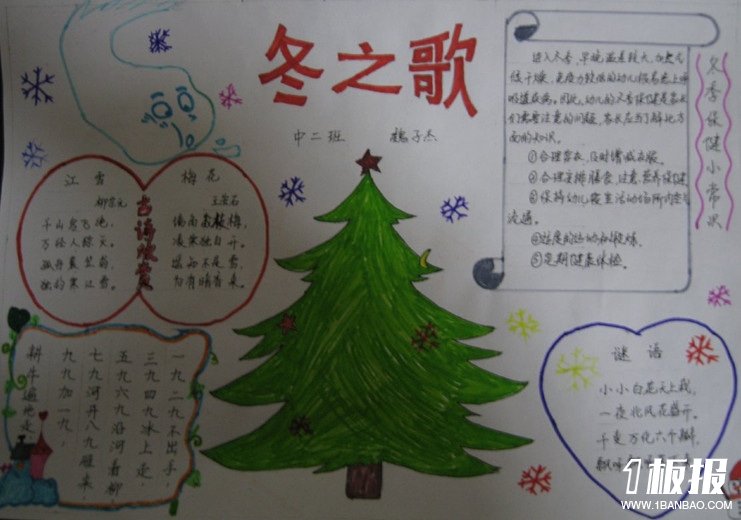 冬之歌
中二班
子杰
江雪
柳宗元
千山鸟飞绝,
万径人踪灭。
孤舟蓑笠翁,
独钓寒江雪。
古诗欣赏
梅花
王安石
墙角数枝梅,
凌寒独自开。
遥知不是雪,
为有暗香来。
冬季保健小常识
进入冬季,早晚温差较大,加
较干燥,免疫力较低的幼儿很容易患上呼
吸道疾病。因此,幼儿的冬季保健是家长
们需要注意的问题,家长应当了解此方
面的知识。
①合理穿衣,及时增减衣服。
②合理安排膳食,注意营养保健
③保持幼儿
流通。
④适度的运动和锻炼。
⑤定期健康体检。
一九二九不出手,
三九四九冰上走,
五九六九沿河看柳
七九河开八九雁来,
九九加一九,
耕牛遍地走
谜语
小小白花天上栽,
一夜北风花盛开。
千变万化六个瓣,
飘
1板报
WWW.1BANBAO.COM